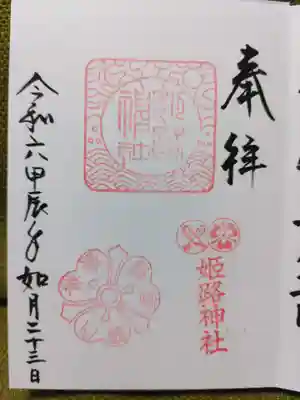 奉拝
姫路神社
令和六甲辰年如月二十三日